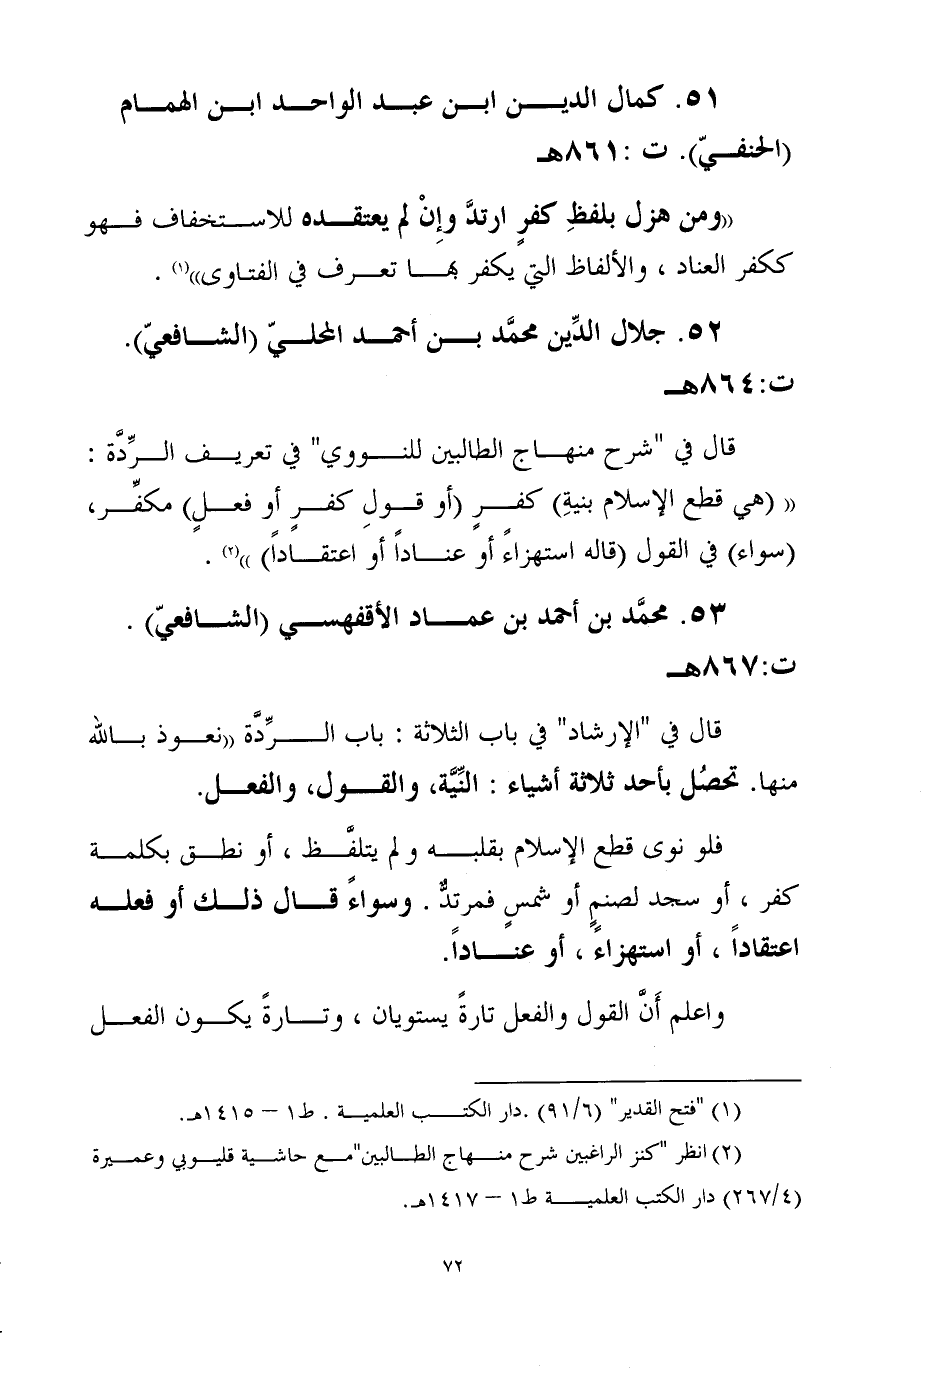 ٥١. كمال الدين ابن عبد الواحد ابن الهمام
(الحنفيّ). ت :٨٦١هـ
((ومن هزل بلفظِ كفرٍ ارتدَّ وإنْ لم يعتقده للاستخفافِ فهو
ككفر العناد ، والألفاظ التي يكفر بها تعرف في الفتاوى))(١) .
٥٢. جلال الدِّين محمَّد بن أحمد المحليّ (الشافعيّ).
ت:٨٦٤هـ
قال في "شرح منهاج الطالبين للنووي" في تعريف الرِّدَّة :
(( (هي قطع الإسلام بنيةِ) كفرٍ (أو قولِ كفرٍ أو فعلٍ) مكفِّر،
(سواء) في القول (قاله استهزاءً أو عناداً أو اعتقاداً) ))(٢) .
٥٣. محمَّد بن أحمد بن عماد الأقفهسي (الشافعيّ) .
ت:٨٦٧هـ
قال في "الإرشاد" في باب الثلاثة : باب الرِّدَّة ((نعوذ بالله
منها. تحصُل بأحد ثلاثة أشياء : النِّيَّة، والقول، والفعل.
فلو نوى قطع الإسلام بقلبه ولم يتلفَّظ ، أو نطق بكلمة
كفر ، أو سجد لصنمٍ أو شمسٍ فمرتدٌّ . وسواءً قال ذلك أو فعله
اعتقاداً ، أو استهزاءً ، أو عناداً.
واعلم أَنَّ القول والفعل تارةً يستويان ، وتارةً يكون الفعل
(١) "فتح القدير" (٩١/٦) .دار الكتب العلمية . ط١ – ١٤١٥هـ.
(٢) انظر "كنز الراغبين شرح منهاج الطالبين"مع حاشية قليوبي وعميرة
(٢٦٧/٤) دار الكتب العلمية ط١ – ١٤١٧هـ.
٧٢